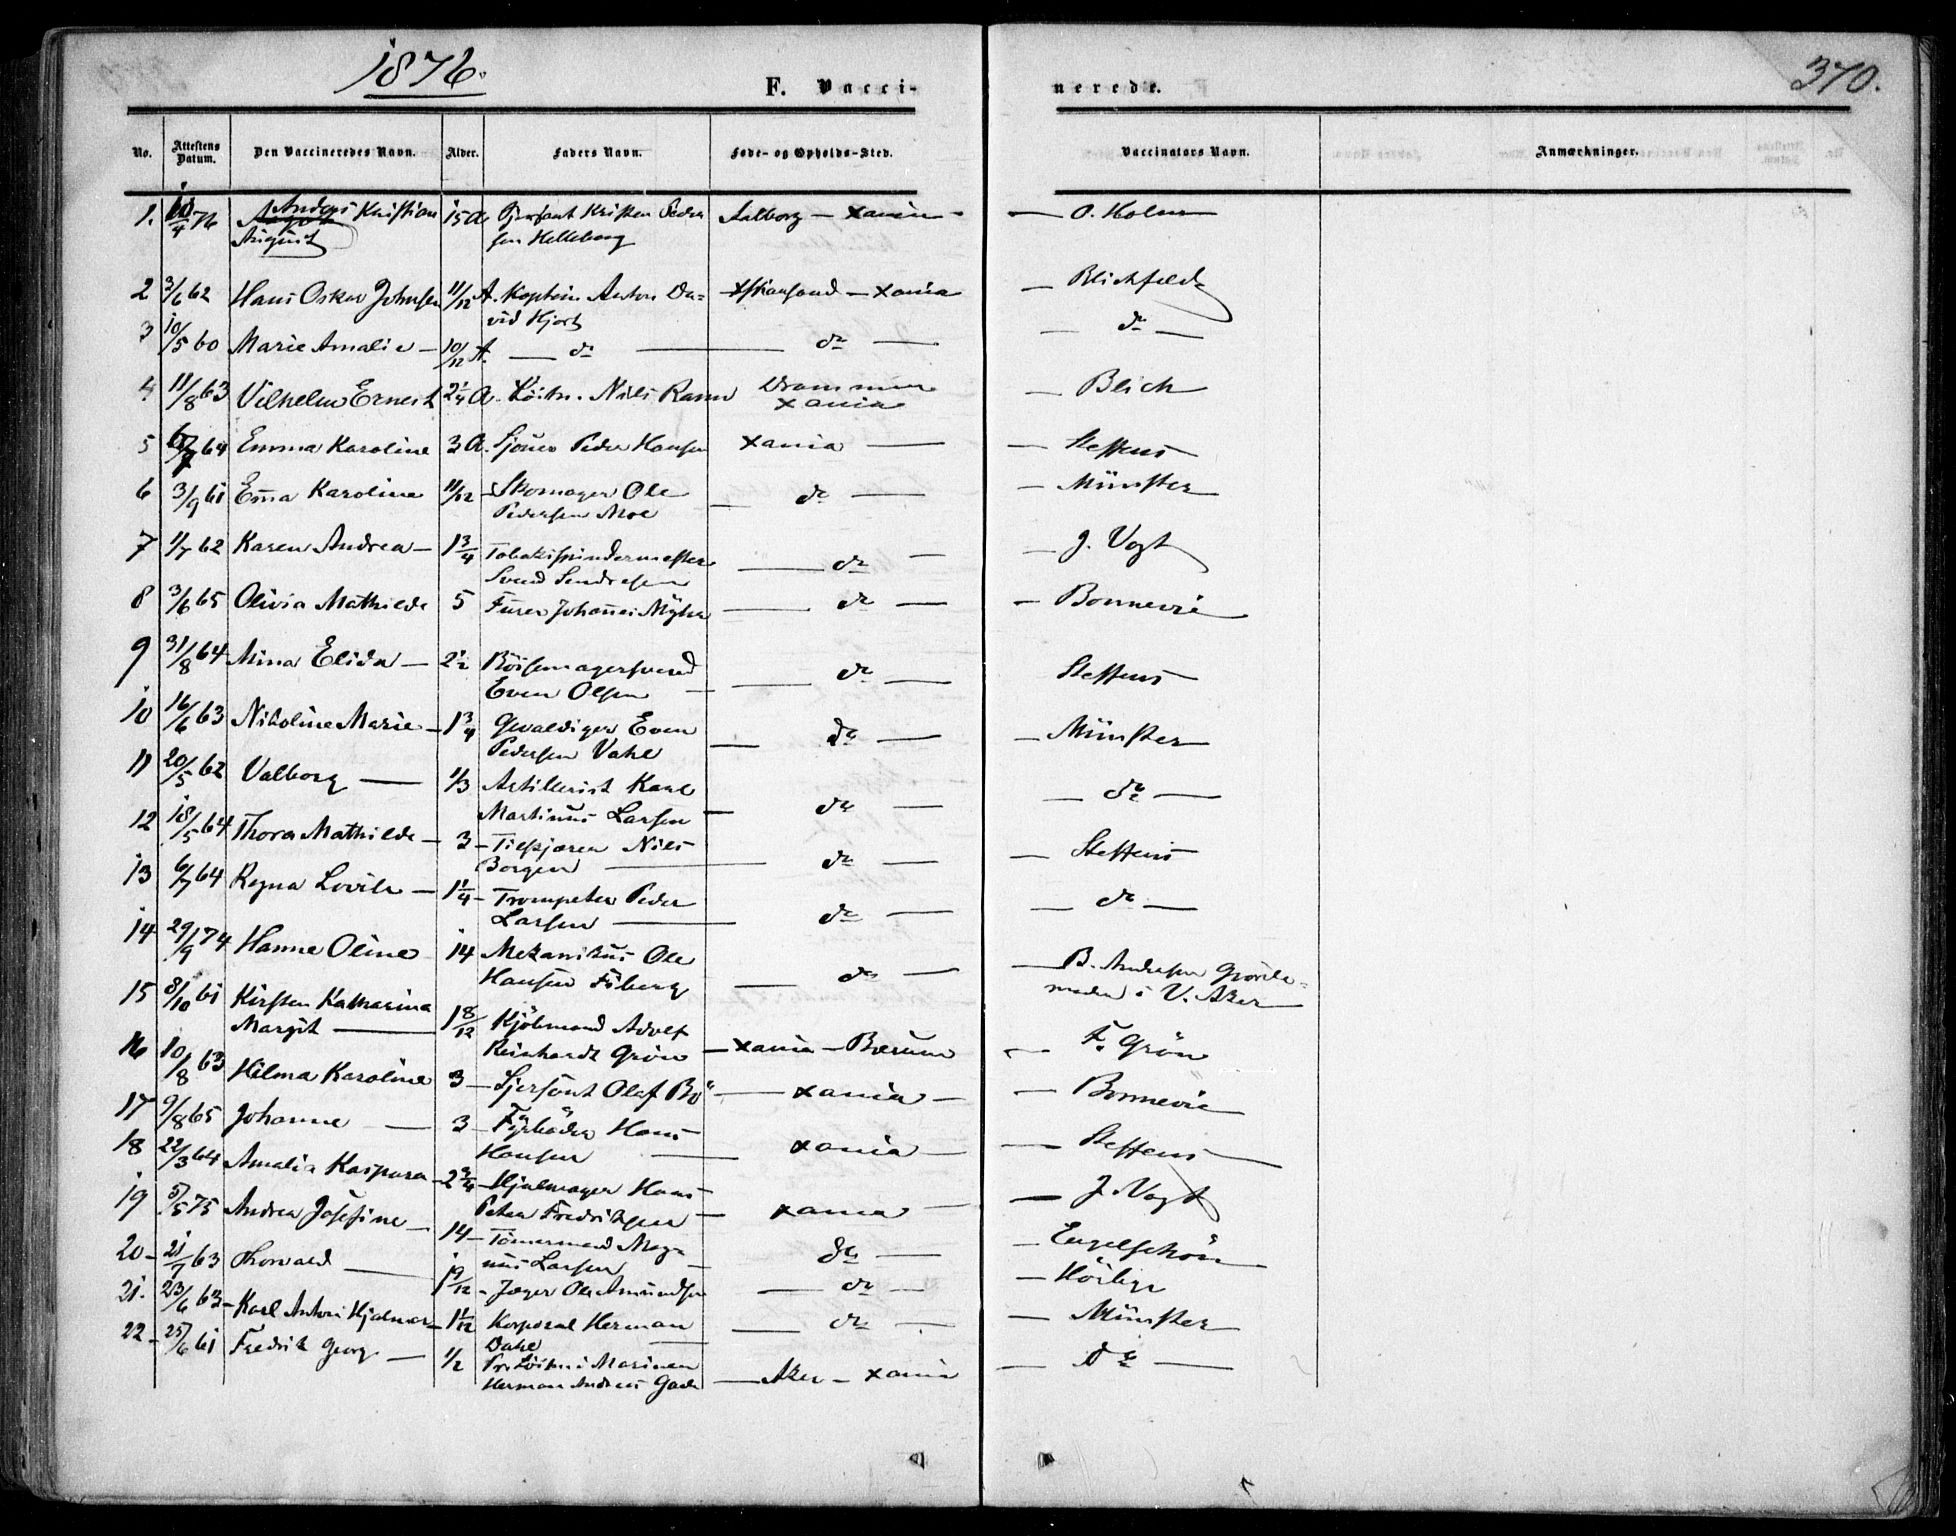 1876.
370.
F. Vacci-
nerede.
No. Attestens Datum. Den Vaccineredes Navn. Alder. Faders Navn. Føde- og Opholds-Sted. Vaccinators Navn. Anmærkninger.
1. 10/4 76 Anders Kristian 15 A Kristen Peder Aalborg — Xania — — O. Holm
August sen Helleberg
2 3/6 62 Hans Oskar Johnsen 11/12 A. Kaptein Anton Da= — Xania — Blichfeldt
vid Hjort
3 10/5 60 Marie Amalie — 10/12 A. — do — do — — do —
4 11/8 63 Vilhelm Ernest 2 1/4 A. Löitn. Nils Ramm Drammen — Blich
Xania
5 64 Emma Karoline 3 A. Peder Hansen Xania — — Steffens
6 3/9 61 Em̄a Karoline 11/12 Skomager Ole — do — — Münster
Pedersen Moe
7 1/7 62 Karen Andrea — 1 3/4 Tobakspindermester — do — — J. Vogt
Svend
8 3/6 65 Olivia Mathilde 5 Furer Johan̄es — do — — Bonnevie
9 31/8 64 Mina Elida — 2 1/2 Bösemagersvend — do — Steffens
Even Olsen —
10 16/6 63 Nikoline Marie — 1 3/4 Gevaldiger Even — do — — Münster
Pedersen Vahl
11 20/5 62 Valborg — 1/3 Artillerist Karl — do — — do —
Martinus Larsen
12 18/5 64 Thora Mathilde — 3 — Nils — do — — Steffens
Borgen —
13 6/7 64 Regna Lovise — 1 1/4 — Trompeter Peder — do — — do —
Larsen —
14 29/9 74 Hanne Oline 14 Mekanikus Ole — do — — B. Andresen
Hansen Fiberg i V. Aker
15 8/10 61 Kirsten Katharina 1 8/12 Kjöbmand Adolf
Margit — Reinhardt Grön — Xania — Bærum — F. Grön
16 10/8 63 Hilma Karoline 3 — Sjersant Olaf Bö — Xania — — Bonnevie
17 9/8 65 Johanne — 3 — Fyrböder Hans — Xania — — Steffens —
Hansen —
18 22/3 64 Amalia Kaspara — 2 3/4 — Hjulmager Hans — Xania — — J. Vogt
Peter Fredriksen —
19 5/5 75 Andrea Josefine — 14 — Tömermand Mag- — do — — Engelschön
nus Larsen
20 — 21/7 63 Thorvald — 19/12 — Jæger Ole Amundsen — do —
21. 23/6 63 — Karl Anton Hjalmar — 1 1/12 Korporal Herman — do — — Münster
Dahl —
22 — 25/6 61 Fredrik Georg — 1/2 Pr. Löitn. i Marinen
Herman Andreas Gade — Aker — Xania — do —